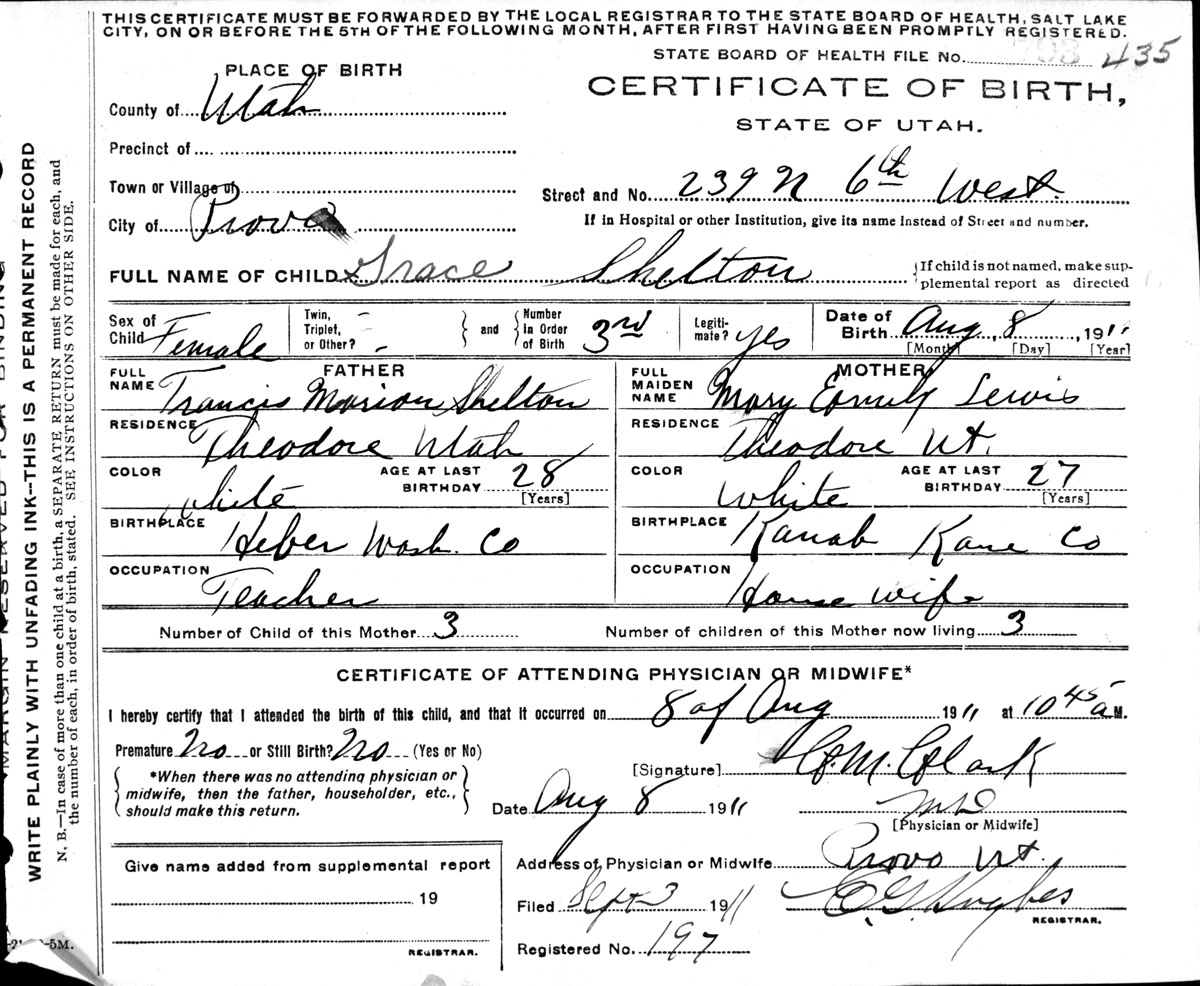 THIS CERTIFICATE MUST BE FORWARDED BY THE LOCAL REGISTRAR TO THE STATE BOARD OF HEALTH, SALT LAKE
CITY, ON OR BEFORE THE 5TH OF THE FOLLOWING MONTH, AFTER FIRST HAVING BEEN PROMPTLY REGISTERED.
STATE BOARD OF HEALTH FILE No. 435
PLACE OF BIRTH
CERTIFICATE OF BIRTH,
STATE OF UTAH.
County of Utah
Precinct of
Town or Village of
Street and No. 239 N 6th West.
City of Provo
If in Hospital or other Institution, give its name instead of Street and number.
FULL NAME OF CHILD Grace Shelton
If child is not named, make sup-
plemental report as directed
Sex of Child Female
Twin, Triplet, or Other? -
and
Number in Order of Birth 3rd
Legiti-mate? yes
Date of Birth Aug, 8, 1911
[Month] [Day] [Year]
FATHER
FULL NAME Francis Marion Shelton
RESIDENCE Theodore Utah
COLOR White
AGE AT LAST BIRTHDAY 28
[Years]
BIRTHPLACE Heber Wash. Co
OCCUPATION Teacher
MOTHER
FULL MAIDEN NAME Mary Emily Lewis
RESIDENCE Theodore Ut.
COLOR White
AGE AT LAST BIRTHDAY 27
[Years]
BIRTHPLACE Kanab Kane Co
OCCUPATION House wife
Number of Child of this Mother 3
Number of children of this Mother now living 3
CERTIFICATE OF ATTENDING PHYSICIAN OR MIDWIFE*
I hereby certify that I attended the birth of this child, and that it occurred on 8 of Aug 1911 at 10 45 a M.
Premature No or Still Birth? No (Yes or No)
*When there was no attending physician or
midwife, then the father, householder, etc.,
should make this return.
[Signature] G.M. Clark
Date Aug 8 1911
MD
[Physician or Midwife]
Address of Physician or Midwife Provo Ut.
Give name added from supplemental report
19
REGISTRAR.
Filed Sept 3 1911
E.G. Hughes
REGISTRAR.
Registered No. 197
WRITE PLAINLY WITH UNFADING INK--THIS IS A PERMANENT RECORD
N. B.—In case of more than one child at a birth, a SEPARATE RETURN must be made for each, and
the number of each, in order of birth, stated. SEE INSTRUCTIONS ON OTHER SIDE.
5M.